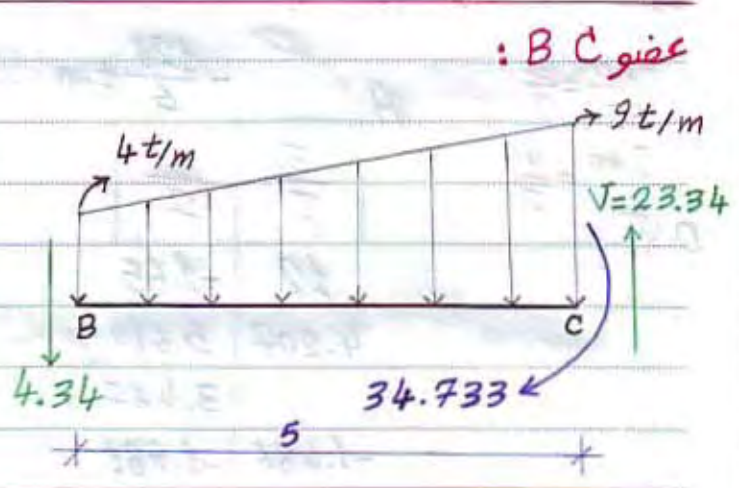 عضو B C :
4 t/m
9 t/m
V=23.34
B
C
4.34
34.733
5